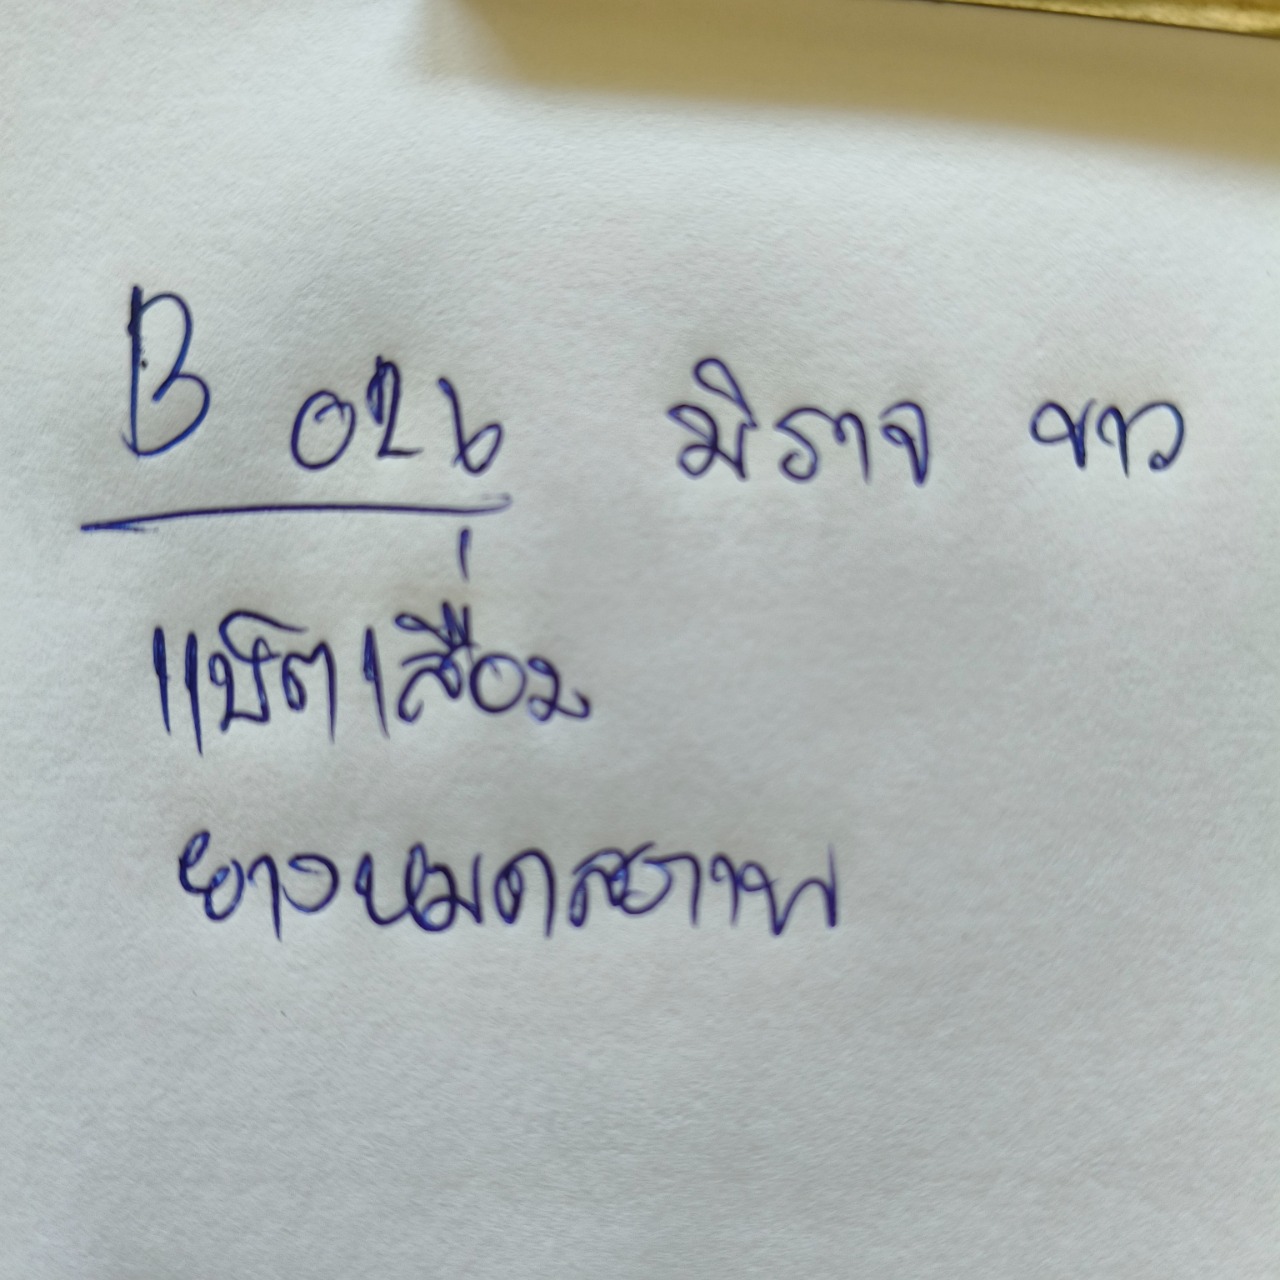 B 026 มิราจ ขาว
แบ๊ตเสื่อม
ยางหมดสภาพ